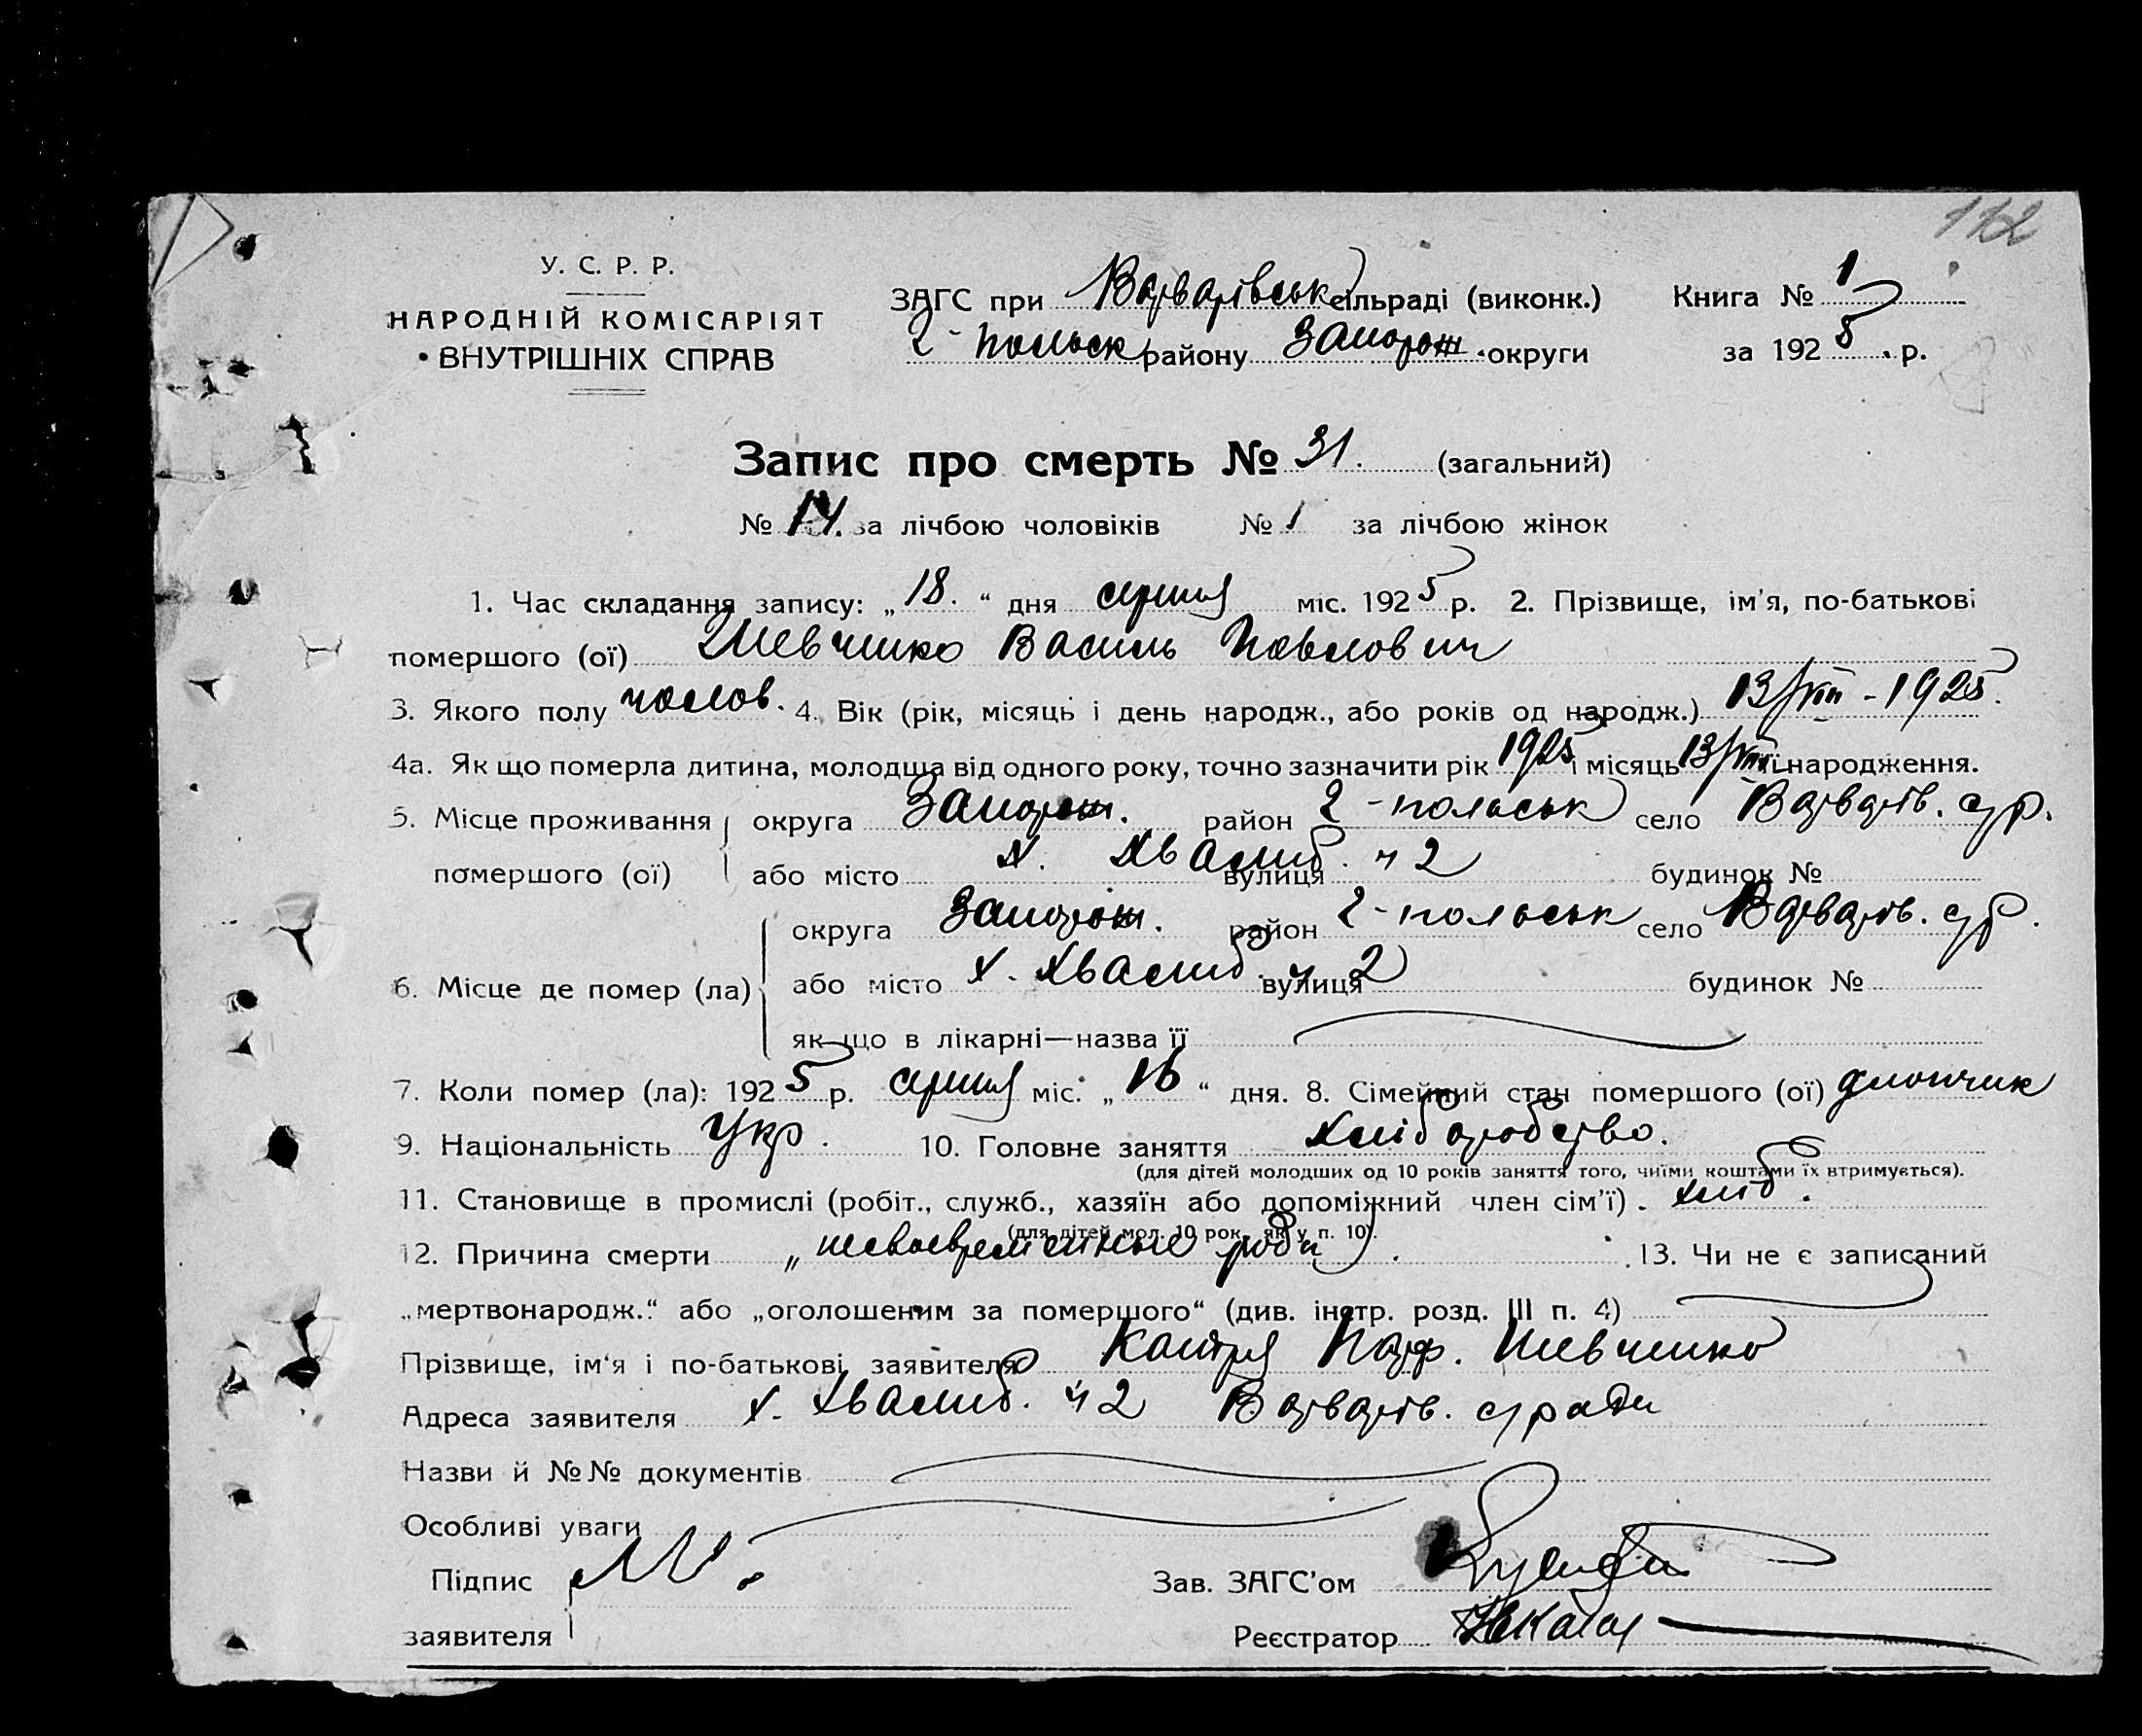 112
У. С. Р. Р.
НАРОДНІЙ КОМІСАРІЯТ
ВНУТРІШНІХ СПРАВ
ЗАГС при Варварівськ сільраді (виконк.)
2-польськ району Запорож округи
Книга № 1
за 1925 р.
Запис про смерть № 31. (загальний)
№ 14. за лічбою чоловіків № 1 за лічбою жінок
1. Час складання запису: „18.“ дня серпня міс. 1925 р. 2. Прізвище, ім'я, по-батькові
помершого (ої) Шевченко Василь Павлович
3. Якого полу чолов. 4. Вік (рік, місяць і день народж., або років од народж.) 13/VIII - 1925.
4а. Як що померла дитина, молодща від одного року, точно зазначити рік 1925 і місяць 13/VIII її народження.
5. Місце проживання округа Запорож. район 2-польськ село Варварів. с/р.
помершого (ої) або місто х. Хвалиб. ч 2 вулиця будинок №
округа Запорож. район 2-польськ село Варварів. с/р.
6. Місце де помер (ла) або місто х. Хвалиб. ч 2 вулиця будинок №
як що в лікарні—назва її
7. Коли помер (ла): 1925 р. серпня міс. „16“ дня. 8. Сімейний стан помершого (ої) хлопчик
9. Національність Укр. 10. Головне заняття хліборобство.
(для дітей молодших од 10 років заняття того, чиїми коштами їх втримується).
11. Становище в промислі (робіт., служб., хазяїн або допоміжний член сім'ї). хліб.
(для дітей мол. 10 рок. як у п. 10).
12. Причина смерти „несвоевременные роды. 13. Чи не є записаний
„мертвонародж.“ або „оголошеним за помершого“ (див. інстр. розд. III п. 4)
Прізвище, ім'я і по-батькові заявителя Парф. Шевченко
Адреса заявителя х. Хвалиб. ч 2 Варварів. с/ради
Назви й №№ документів
Особливі уваги
Підпис
заявителя
Зав. ЗАГС'ом
Реєстратор